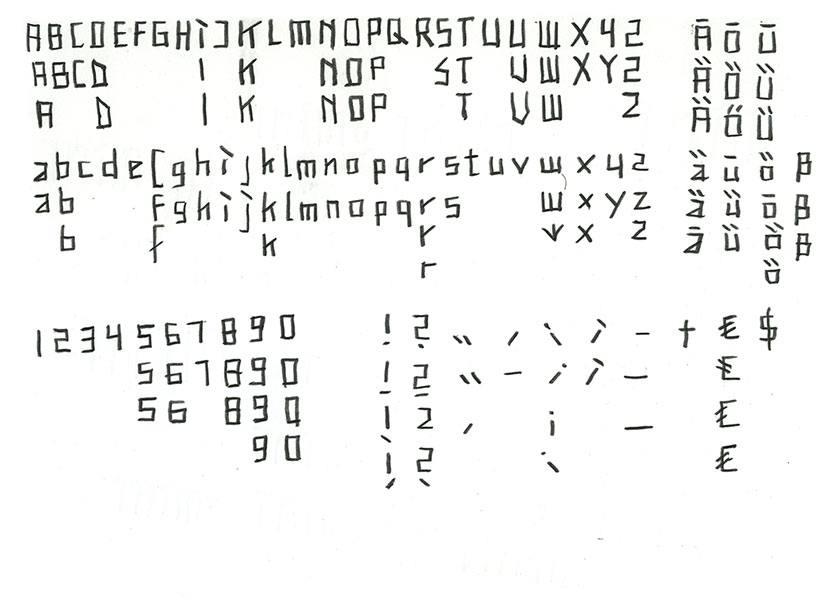 ABCDEFGHIJKLMNOPQRSTUVWXYZ Ā Ō Ū
ABCD I K NOP ST UWXYZ Ä Ö Ü
A D I K NOP T VW Z Ä Ö Ü
abcdefghijklmnopqrstuvwxyz ä ū ö ß
ab fghijklmnopqrs wxyz ä ü ō ß
b f k r vx z ā ü ö ß
r ö
1234567890 ! ? „ , - † € $
567890 ! ? “ - — €
56 890 ! ? , — €
90 ! ? €